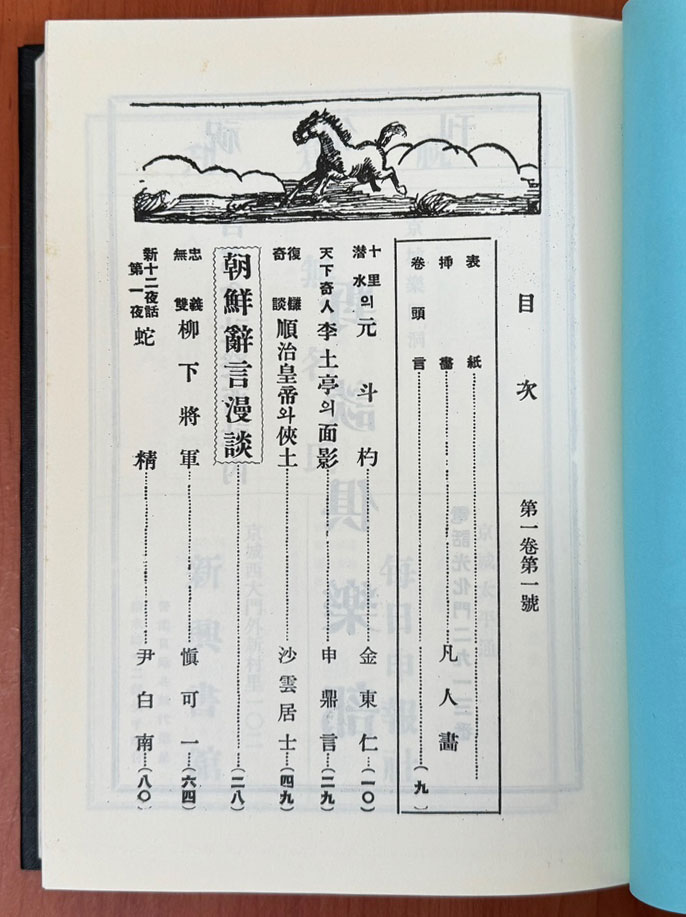 目次
第一卷第一號
表紙
挿畵……凡人畵
卷頭言……(九)
十里潜水의 元斗杓……金東仁……(一〇)
天下奇人 李土亭의 面影……申鼎言……(二九)
復讎奇談 順治皇帝와 俠士……沙雲居士……(四九)
朝鮮辭言漫談……(二八)
忠義無雙 柳下將軍……愼可一……(六四)
新十二夜話 第一夜 蛇精……尹白南……(八〇)